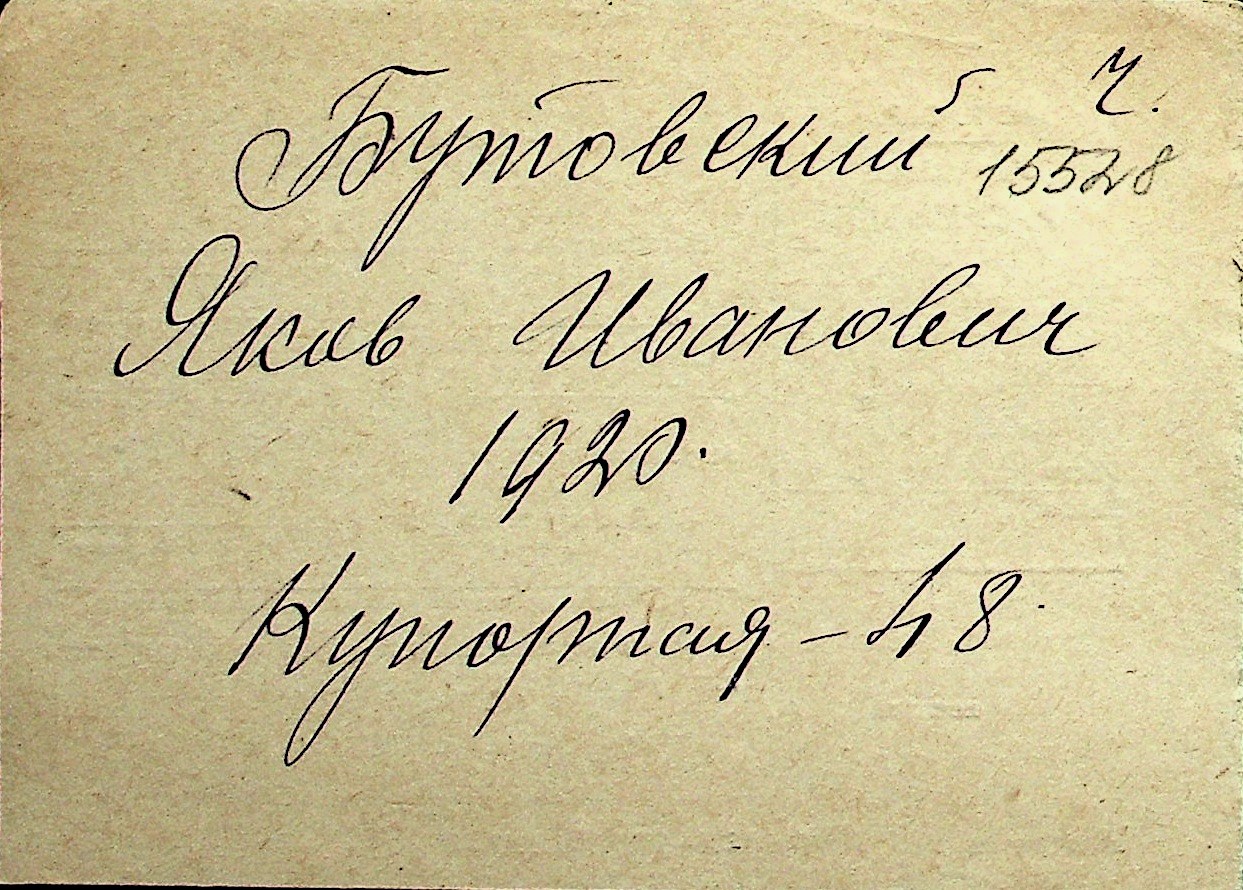 Бутовский Ч.
15528
Яков Иванович
1920.
Купортая - 48.